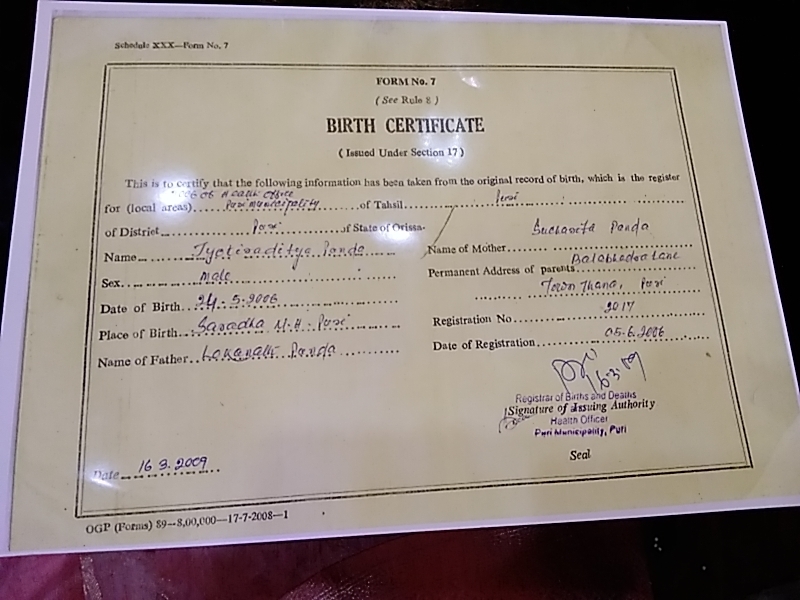 Schedule XXX—Form No. 7
FORM No. 7
( See Rule 8 )
BIRTH CERTIFICATE
( Issued Under Section 17 )
This is to certify that the following information has been taken from the original record of birth, which is the register
of Health Office
for (local areas) Puri municipality of Tahsil Puri
of District Puri of State of Orissa.
Name Jyotiraditya Panda
Sex Male
Date of Birth 24.5.2006
Place of Birth Saradha N.H. Puri
Name of Father Lokanath Panda
Name of Mother Sucharita Panda
Permanent Address of parents Balabhadra Lane
Town Thana, Puri
Registration No 2017
Date of Registration 05.6.2006
16.3.09
Registrar of Births and Deaths
Signature of Issuing Authority
Health Officer
Puri Municipality, Puri
Seal
Date 16 3.2009
OGP (Forms) 89—8,00,000—17-7-2008—1